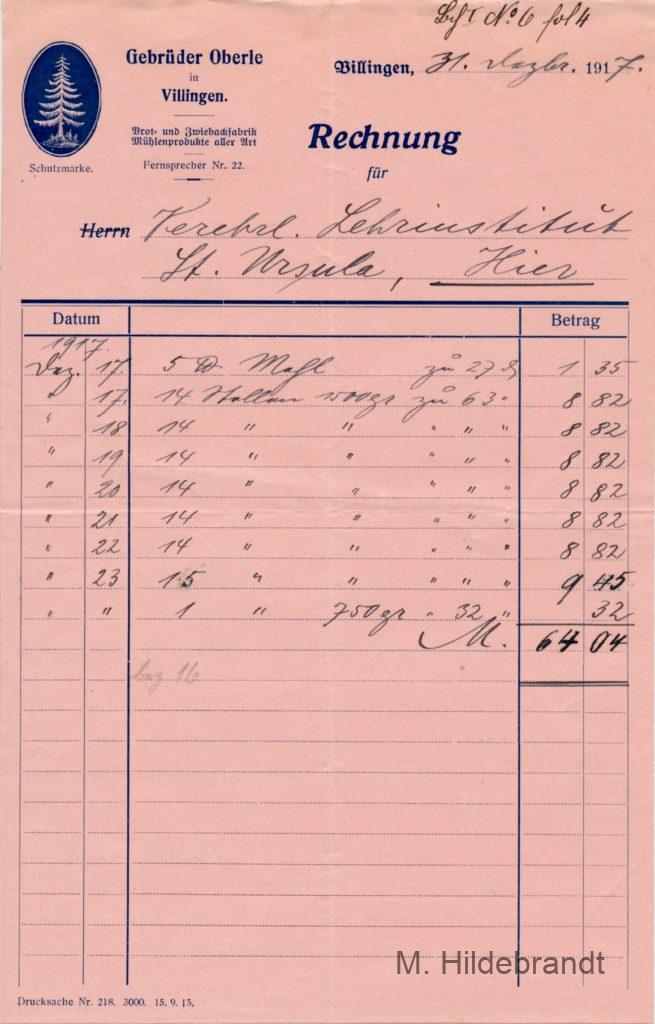 No 6 fol 4
Gebrüder Oberle
in
Villingen.
Brot- und Zwiebackfabrik
Mühlenprodukte aller Art
Fernsprecher Nr. 22.
Schutzmarke.
Villingen, 31. Dezbr. 1917.
Rechnung
für
Herrn Verehrl. Lehrinstitut
St. Ursula, Hier
Datum Betrag
1917.
Dez. 17. 5 ℔ Mehl zu 27 ₰ 1 35
" 17. 14 Stollen 1500gr zu 63 " 8 82
" 18 14 " " " " " 8 82
" 19 14 " " " " " 8 82
" 20 14 " " " " " 8 82
" 21 14 " " " " " 8 82
" 22 14 " " " " " 8 82
" 23 15 " " " " " 9 45
" " 1 " 750gr " 32 " 32
M. 64 04
M. Hildebrandt
Drucksache Nr. 218. 3000. 15. 9. 15.